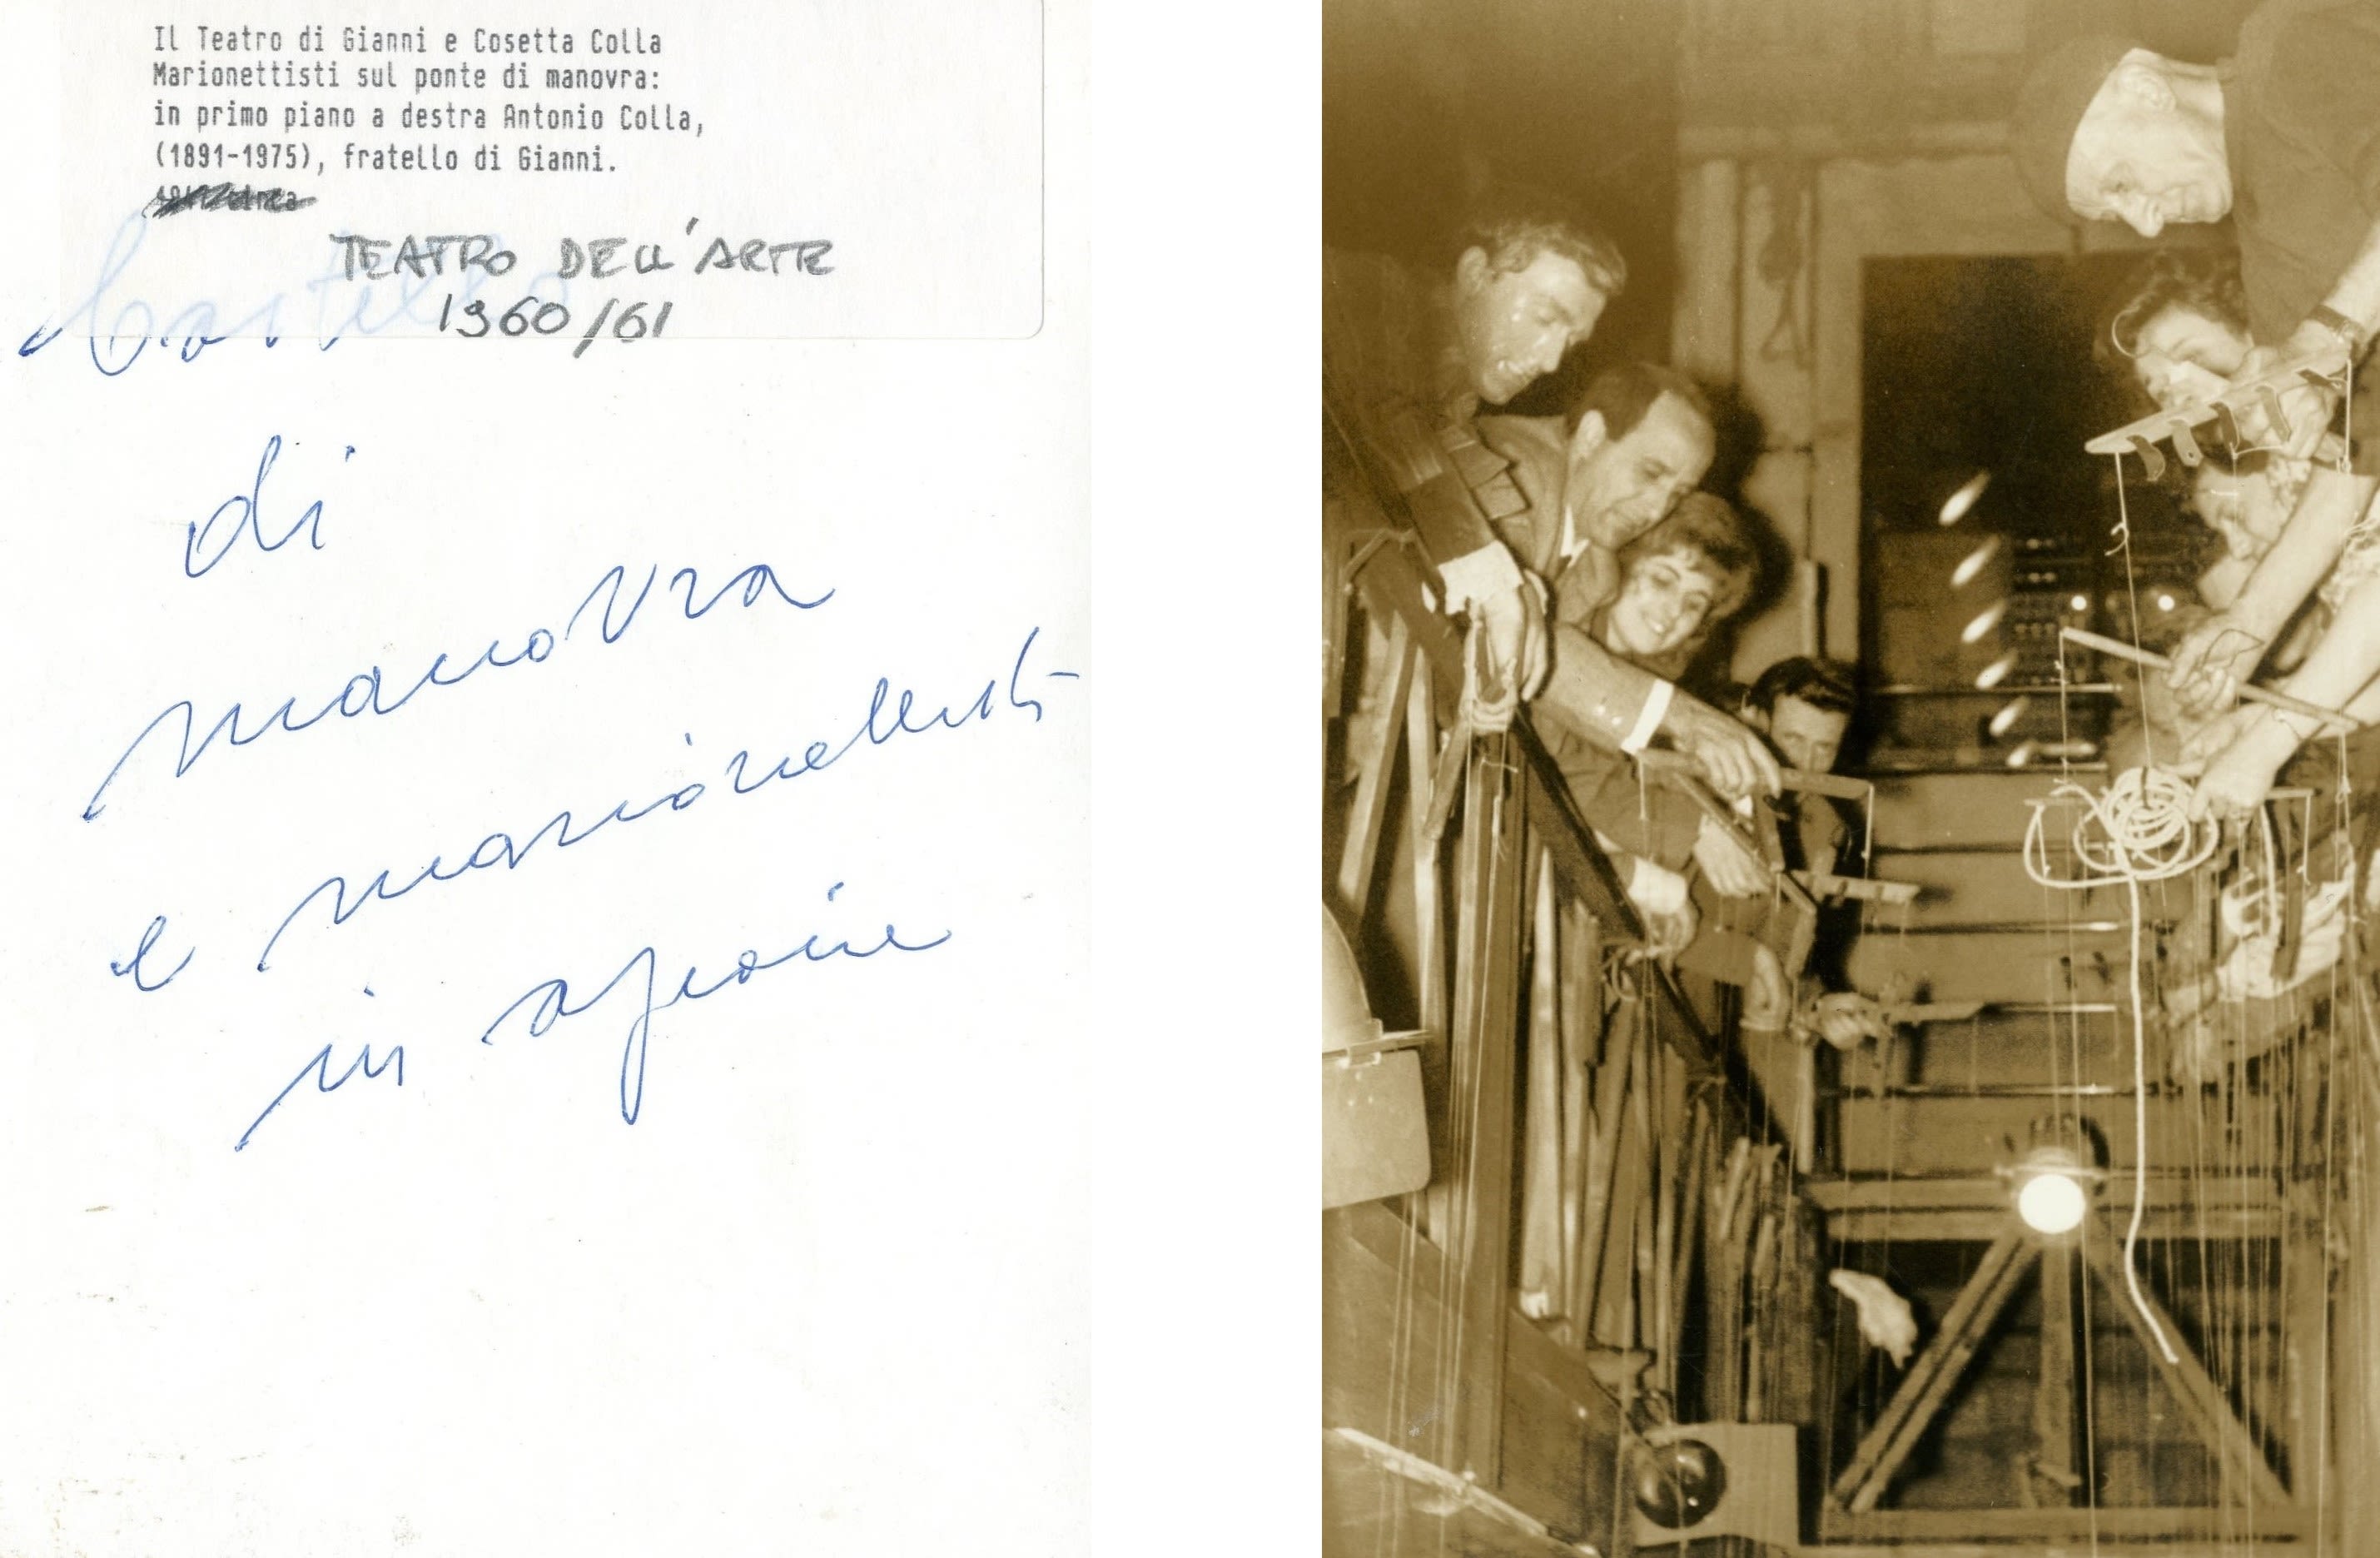 Il Teatro di Gianni e Cosetta Colla
Marionettisti sul ponte di manovra:
in primo piano a destra Antonio Colla,
(1891-1975), fratello di Gianni.
TEATRO DELL'ARTE
1960/61
Castello
di
manovra
e marionettisti
in azione